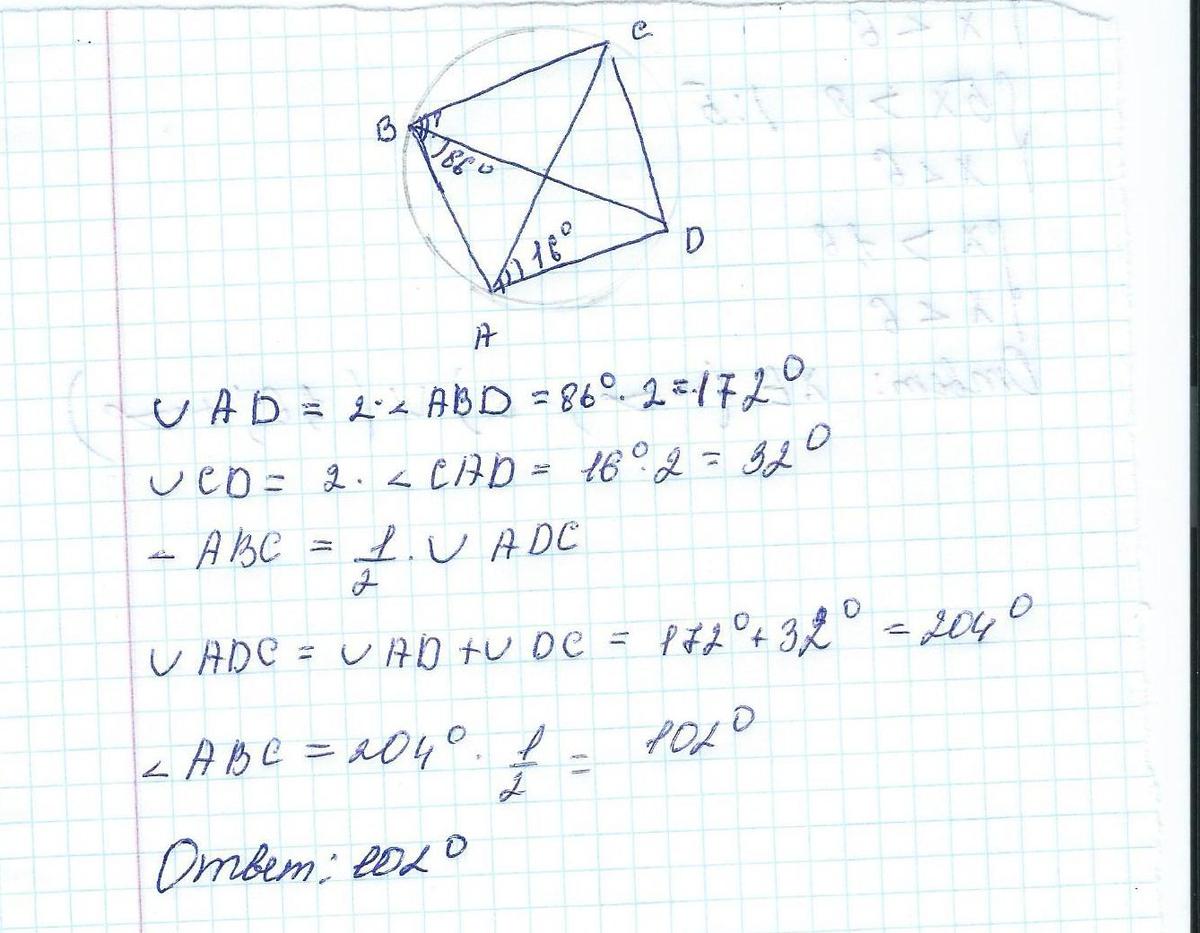 C
B
86°
16°
D
A
∪ AD = 2·∠ ABD = 86°·2 = 172°
∪ CD = 2·∠ CAD = 16°·2 = 32°
∠ ABC = 1/2 · ∪ ADC
∪ ADC = ∪ AD + ∪ DC = 172° + 32° = 204°
∠ ABC = 204° · 1/2 = 102°
Ответ: 102°